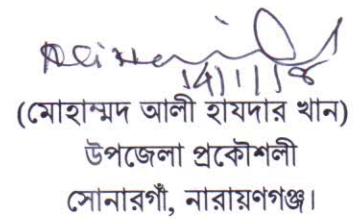 14/11/18
(মোহাম্মদ আলী হায়দার খান)
উপজেলা প্রকৌশলী
সোনারগাঁ, নারায়ণগঞ্জ।